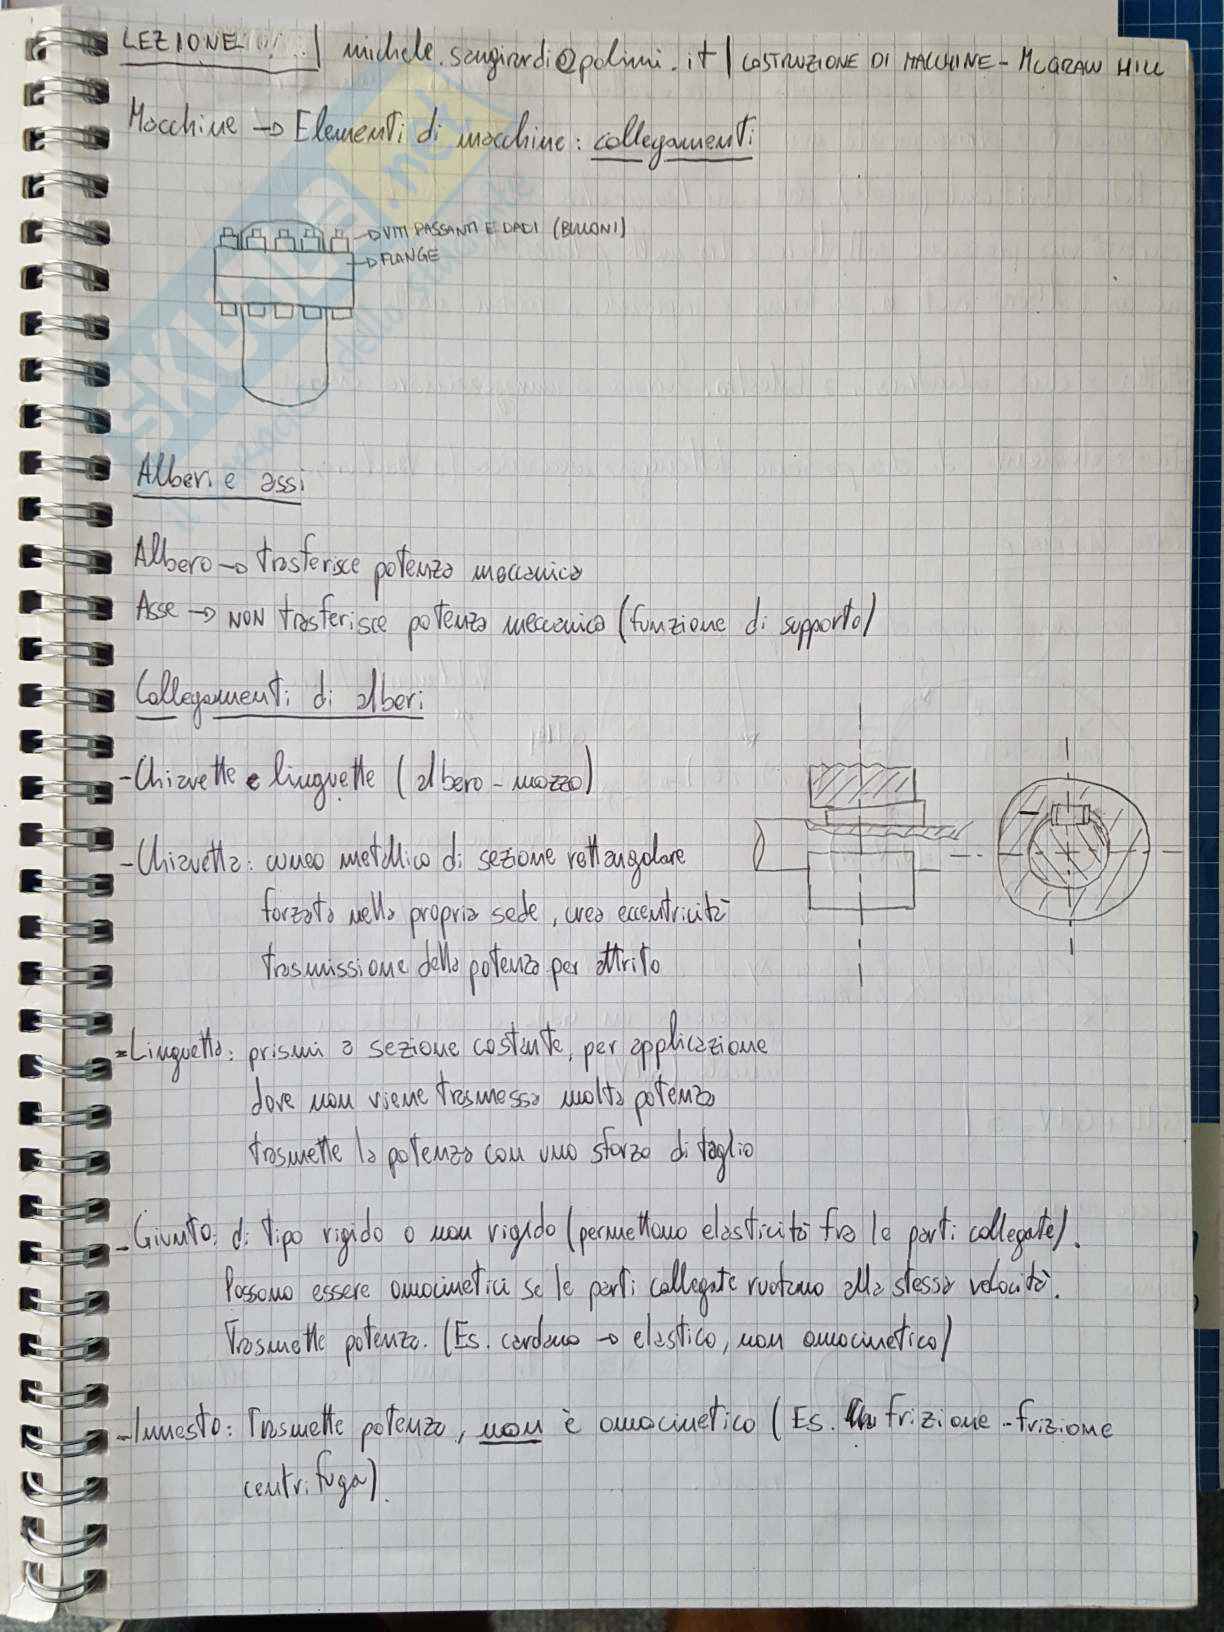 LEZIONE | michele.sangirardi@polimi.it | COSTRUZIONE DI MACCHINE - McGRAW HILL
Macchine → Elementi di macchine: collegamenti
→ VITI PASSANTI E DADI (BULLONI)
→ FLANGE
SKUOLA.net
Alberi e assi
Albero → trasferisce potenza meccanica
Asse → NON trasferisce potenza meccanica (funzione di supporto)
Collegamenti di alberi
- Chiavette e linguette (albero - mozzo)
- Chiavetta: cuneo metallico di sezione rettangolare
forzata nella propria sede, crea eccentricità
trasmissione della potenza per attrito
- Linguetta: prismi a sezione costante, per applicazione
dove non viene trasmessa molta potenza
trasmette la potenza con uno sforzo di taglio
- Giunto: di tipo rigido o non rigido (permettono elasticità fra le parti collegate).
Possono essere omocinetici se le parti collegate ruotano alla stessa velocità.
Trasmette potenza. (Es. cardano → elastico, non omocinetico)
- Innesto: Trasmette potenza, non è omocinetico (Es. frizione - frizione
centrifuga).